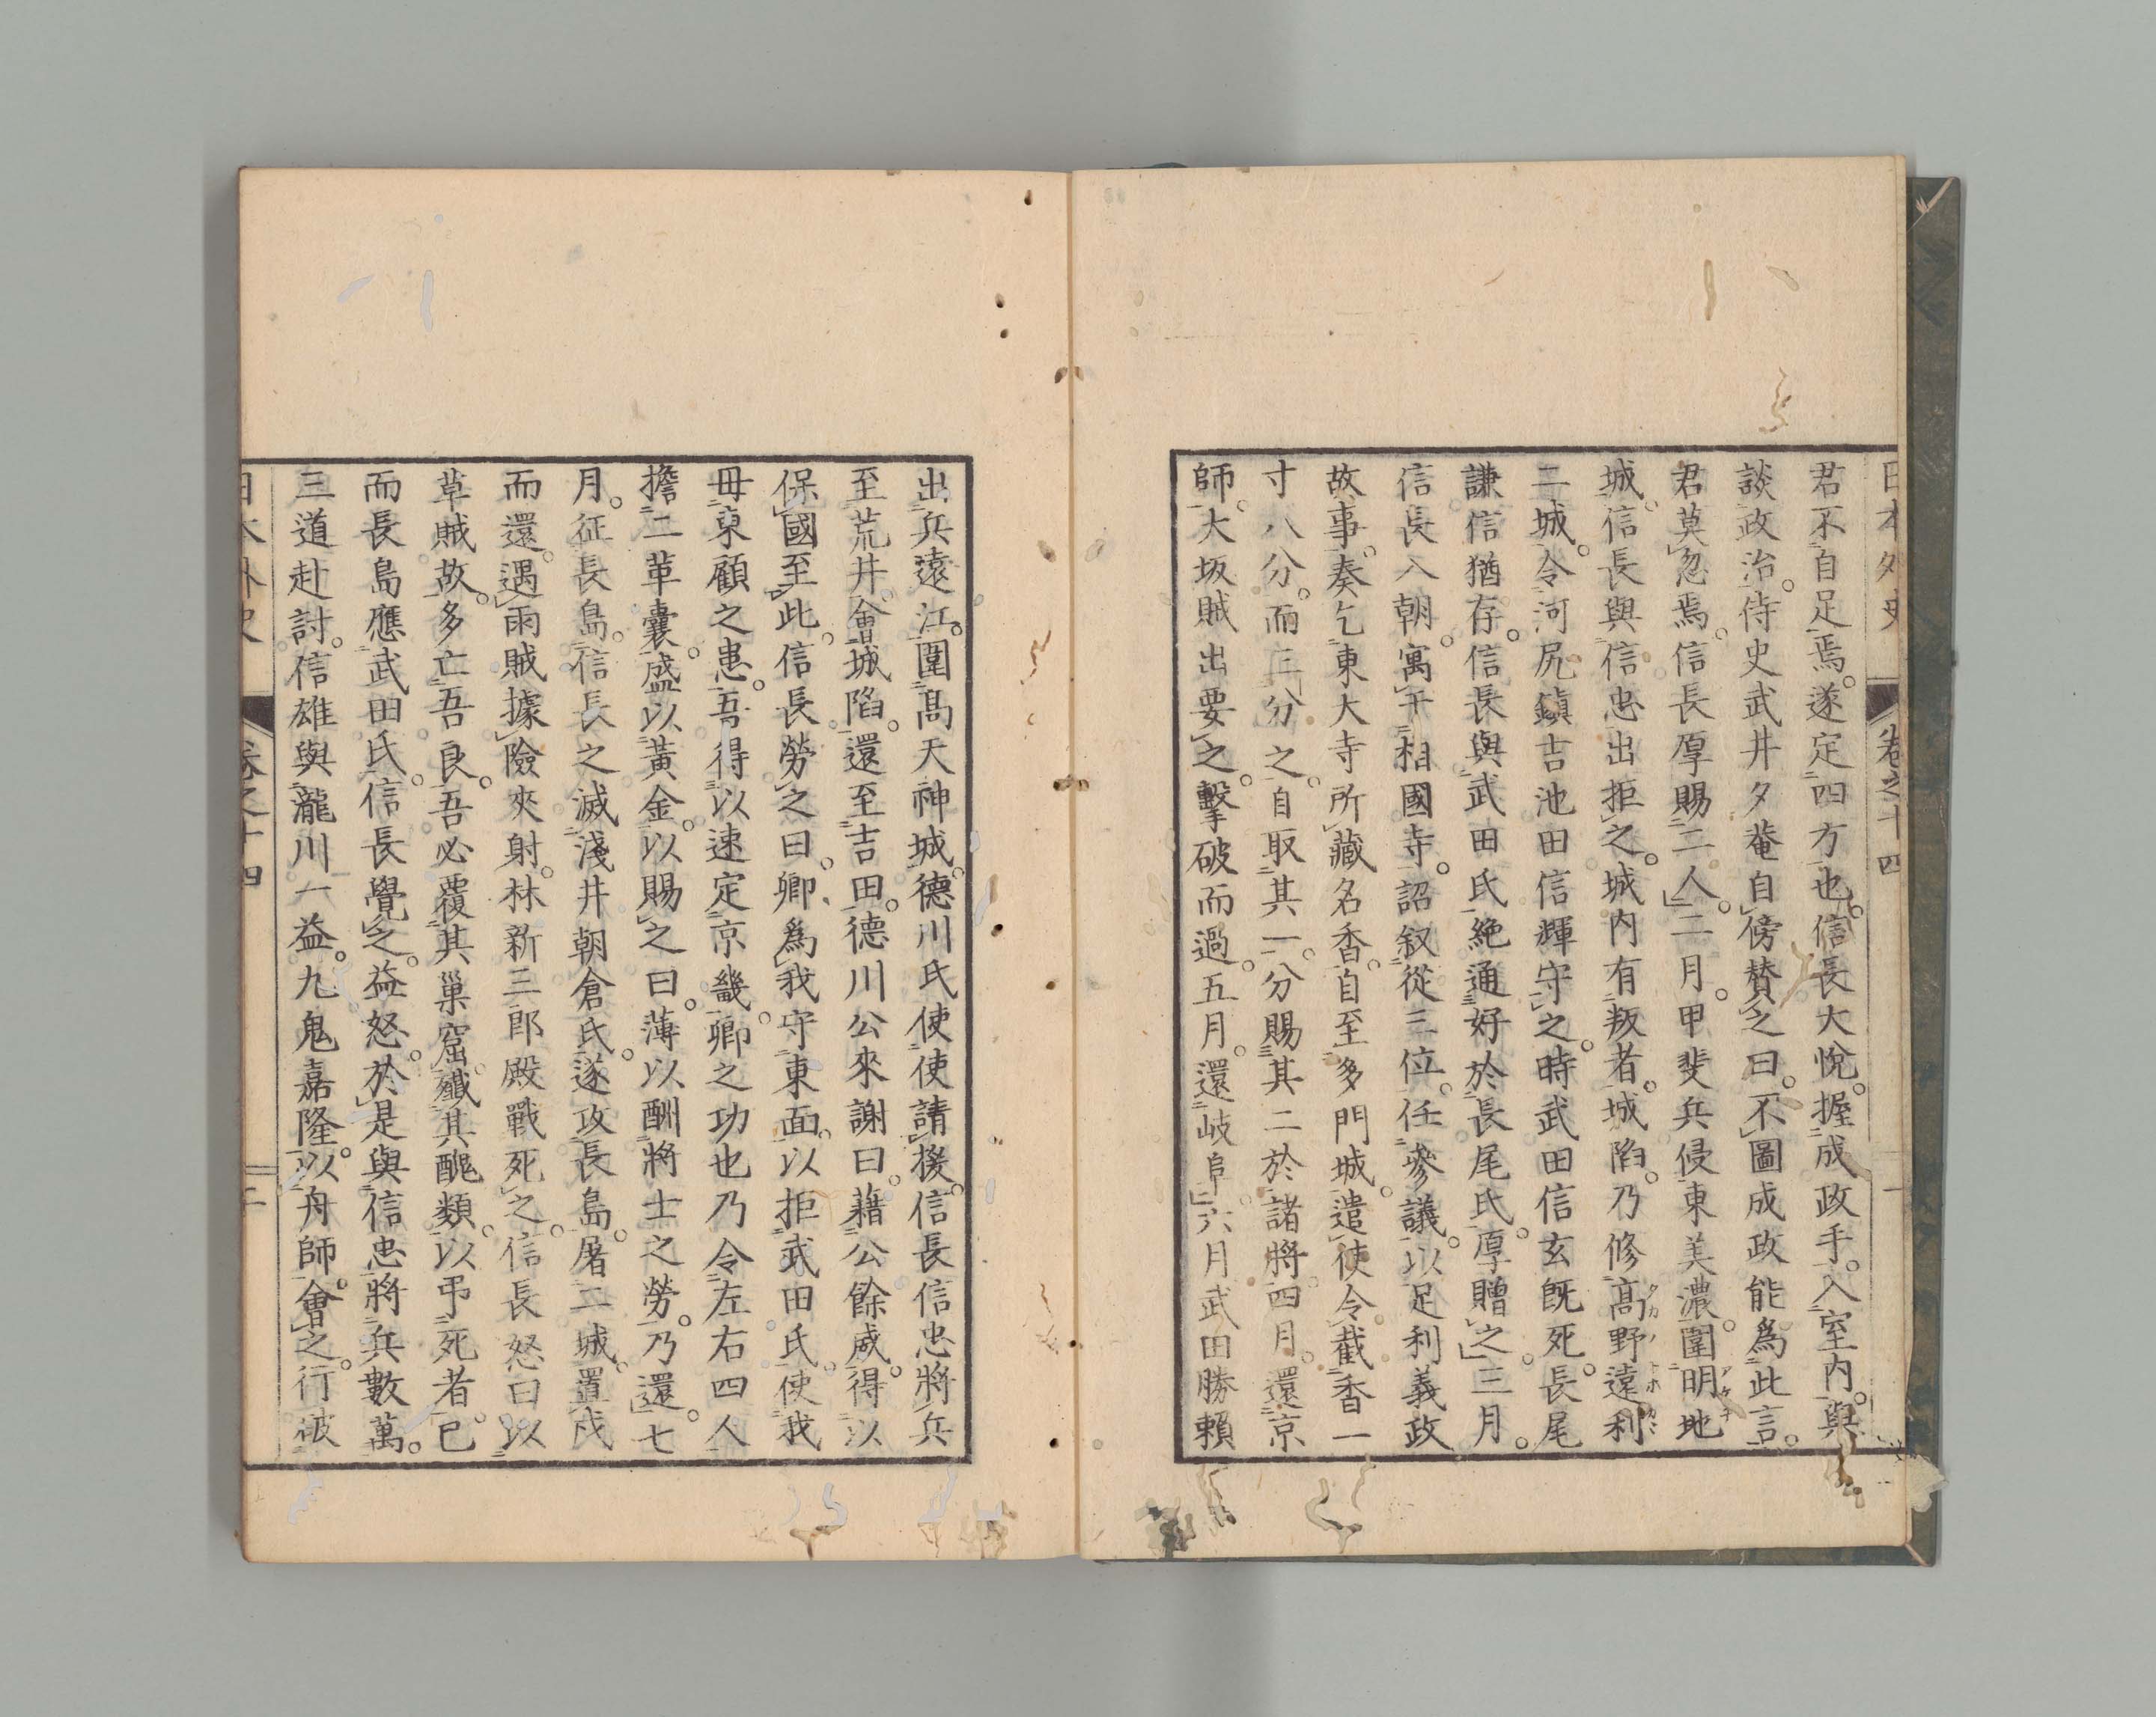 日本外史 卷之十四 一
君不自足焉。遂定四方也。信長大悅。握成政手。入室内。與
談政治。侍史武井夕菴自傍贊之曰。不圖成政能爲此言。
君莫忽焉。信長厚賜二人。二月。甲斐兵侵東美濃。圍明地
城。信長與信忠出拒之。城内有叛者。城陷。乃修高野遠利
二城。令河尻鎭吉池田信輝守之。時武田信玄既死。長尾
謙信猶存。信長與武田氏絶通好於長尾氏。厚贈之。三月。
信長入朝。寓于相國寺。詔叙從三位。任參議。以足利義政
故事。奏乞東大寺所藏名香。自至多門城。遣使令截香一
寸八分。而三分之。自取其一。分賜其二於諸將。四月。還京
師。大坂賊出要之。擊破而過。五月。還岐阜。六月武田勝賴
出兵遠江。圍髙天神城。德川氏使使請援。信長信忠將兵
至荒井。會城陷。還至吉田。德川公來謝曰。藉公餘威。得以
保國至此。信長勞之曰。卿爲我守東面。以拒武田氏。使我
毋東顧之患。吾得以速定京畿。卿之功也乃令左右四人
擔二革囊。盛以黃金。以賜之曰。薄以酬將士之勞。乃還。七
月。征長島。信長之滅淺井朝倉氏。遂攻長島。屠二城。置戍
而還。遇雨賊據險夾射。林新三郎殿戰死之。信長怒曰以
草賊故。多亡吾良。吾必覆其巢窟。殲其醜類。以弔死者。已
而長島應武田氏。信長覺之。益怒。於是與信忠將兵數萬。
三道赴討。信雄與瀧川一益。九鬼嘉隆。以舟師會之。行彼
日本外史 卷之十四 二